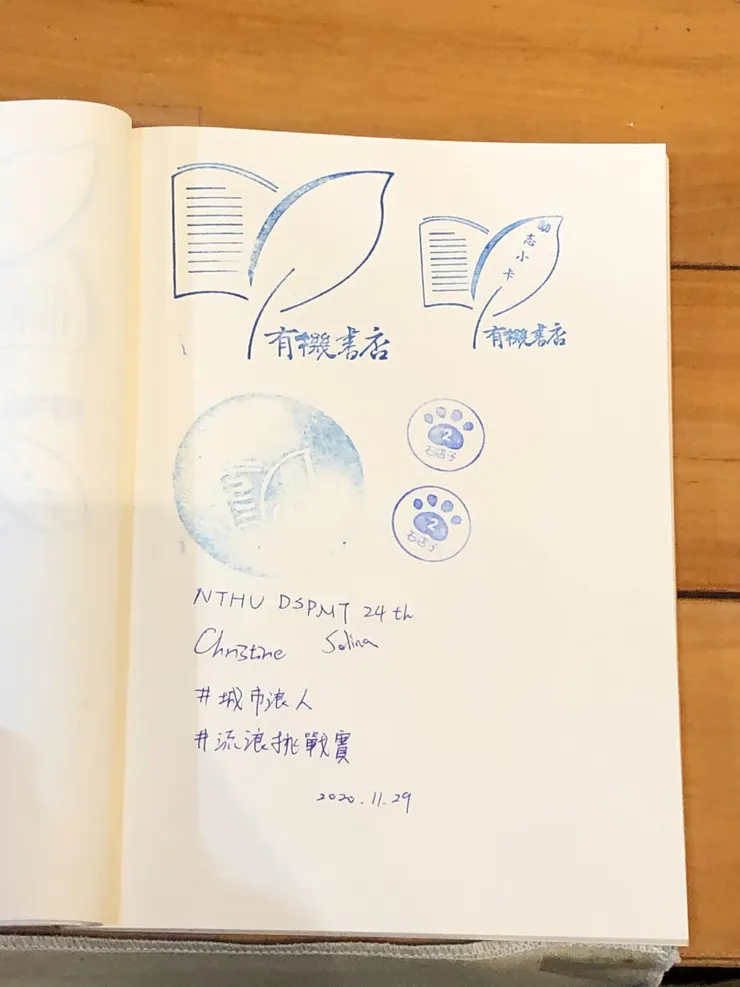 有機書店
勵志小卡
有機書店
2
石店子
2
石店子
NTHU DSPMT 24th
Christine Selina
#城市浪人
#流浪挑戰賽
2020.11.29